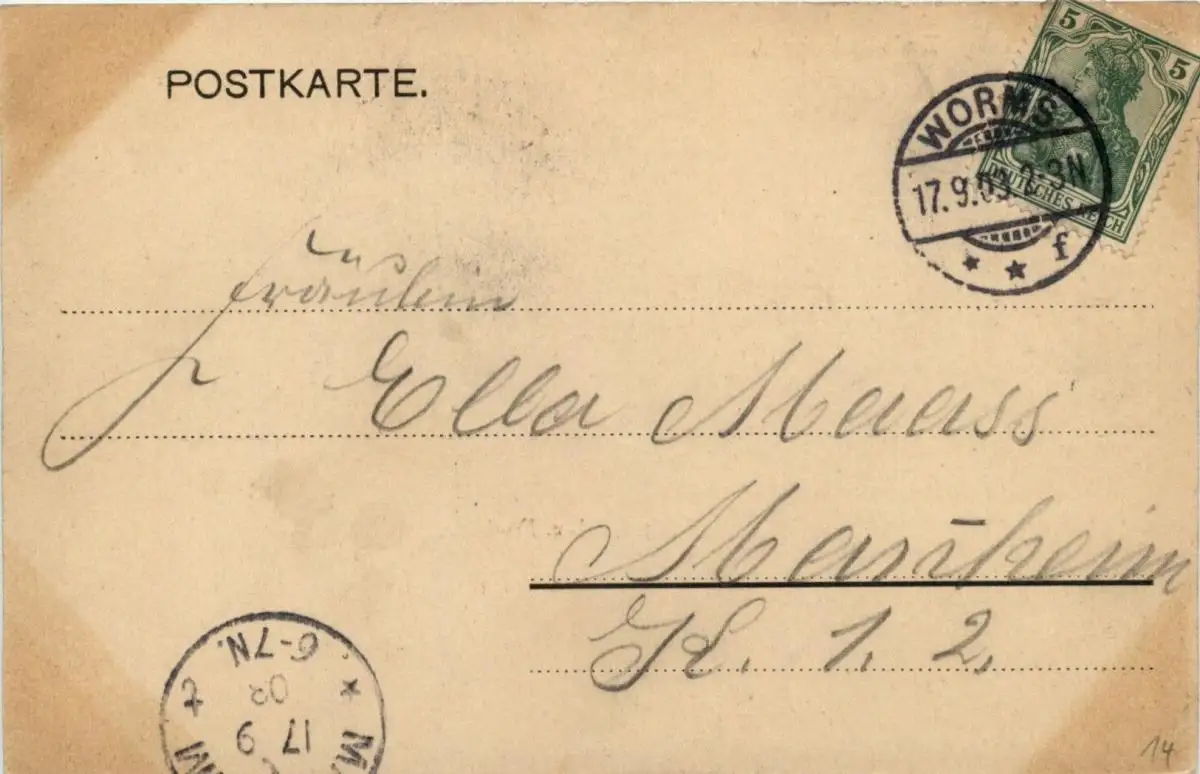 POSTKARTE.
5 5
DEUTSCHES REICH
WORMS
17.9.03. 2-3N
* * f
Fräulein
Ella Maass
Man̄heim
K. 1. 2.
6-7N.
03
17 9
14